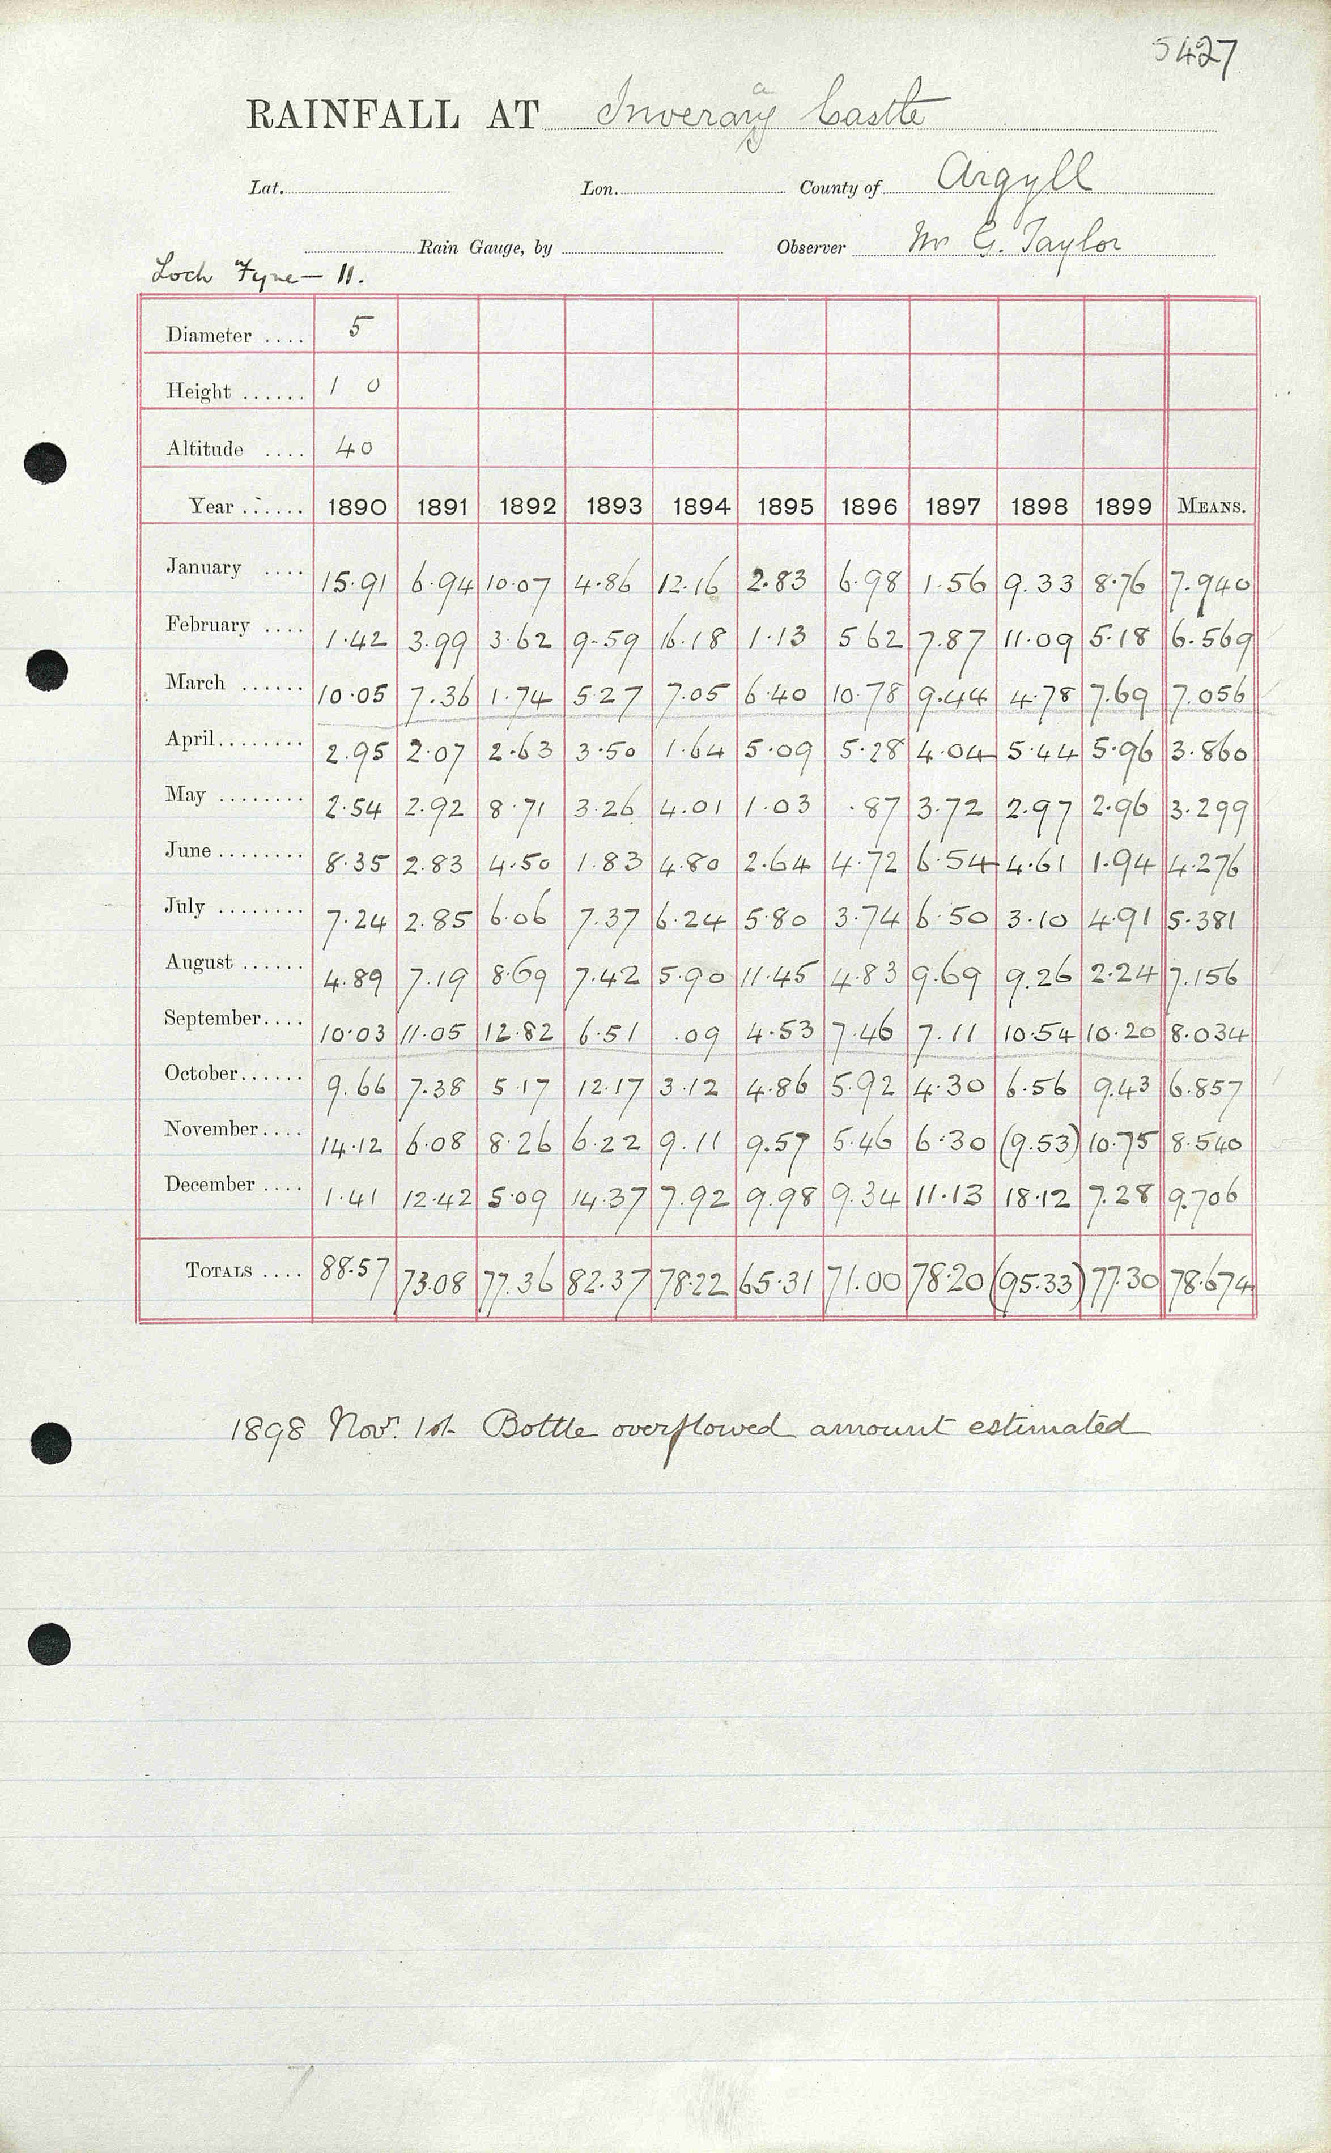 5427
RAINFALL AT Inverary Castle
a
Lat. Lon. County of Argyll
Rain Gauge, by Observer Mr G. Taylor
Loch Fyne — 11.
Diameter .... 5
Height ...... 1 0
Altitude .... 40
Year ...... 1890 1891 1892 1893 1894 1895 1896 1897 1898 1899 MEANS.
January .... 15.91 6.94 10.07 4.86 12.16 2.83 6.98 1.56 9.33 8.76 7.940
February .... 1.42 3.99 3.62 9.59 16.18 1.13 5 62 7.87 11.09 5.18 6.569
March ...... 10.05 7.36 1.74 5.27 7.05 6.40 10.78 9.44 4.78 7.69 7.056
April........ 2.95 2.07 2.63 3.50 1.64 5.09 5.28 4.04 5.44 5.96 3.860
May ........ 2.54 2.92 8.71 3.26 4.01 1.03 .87 3.72 2.97 2.96 3.299
June ........ 8.35 2.83 4.50 1.83 4.80 2.64 4.72 6.54 4.61 1.94 4.276
July ........ 7.24 2.85 6.06 7.37 6.24 5.80 3.74 6.50 3.10 4.91 5.381
August ...... 4.89 7.19 8.69 7.42 5.90 11.45 4.83 9.69 9.26 2.24 7.156
September.... 10.03 11.05 12.82 6.51 .09 4.53 7.46 7.11 10.54 10.20 8.034
October...... 9.66 7.38 5.17 12.17 3.12 4.86 5.92 4.30 6.56 9.43 6.857
November.... 14.12 6.08 8.26 6.22 9.11 9.57 5.46 6.30 (9.53) 10.75 8.540
December .... 1.41 12.42 5.09 14.37 7.92 9.98 9.34 11.13 18.12 7.28 9.706
TOTALS .... 88.57 73.08 77.36 82.37 78.22 65.31 71.00 78.20 (95.33) 77.30 78.674
1898 Novr. 1st. Bottle overflowed amount estimated